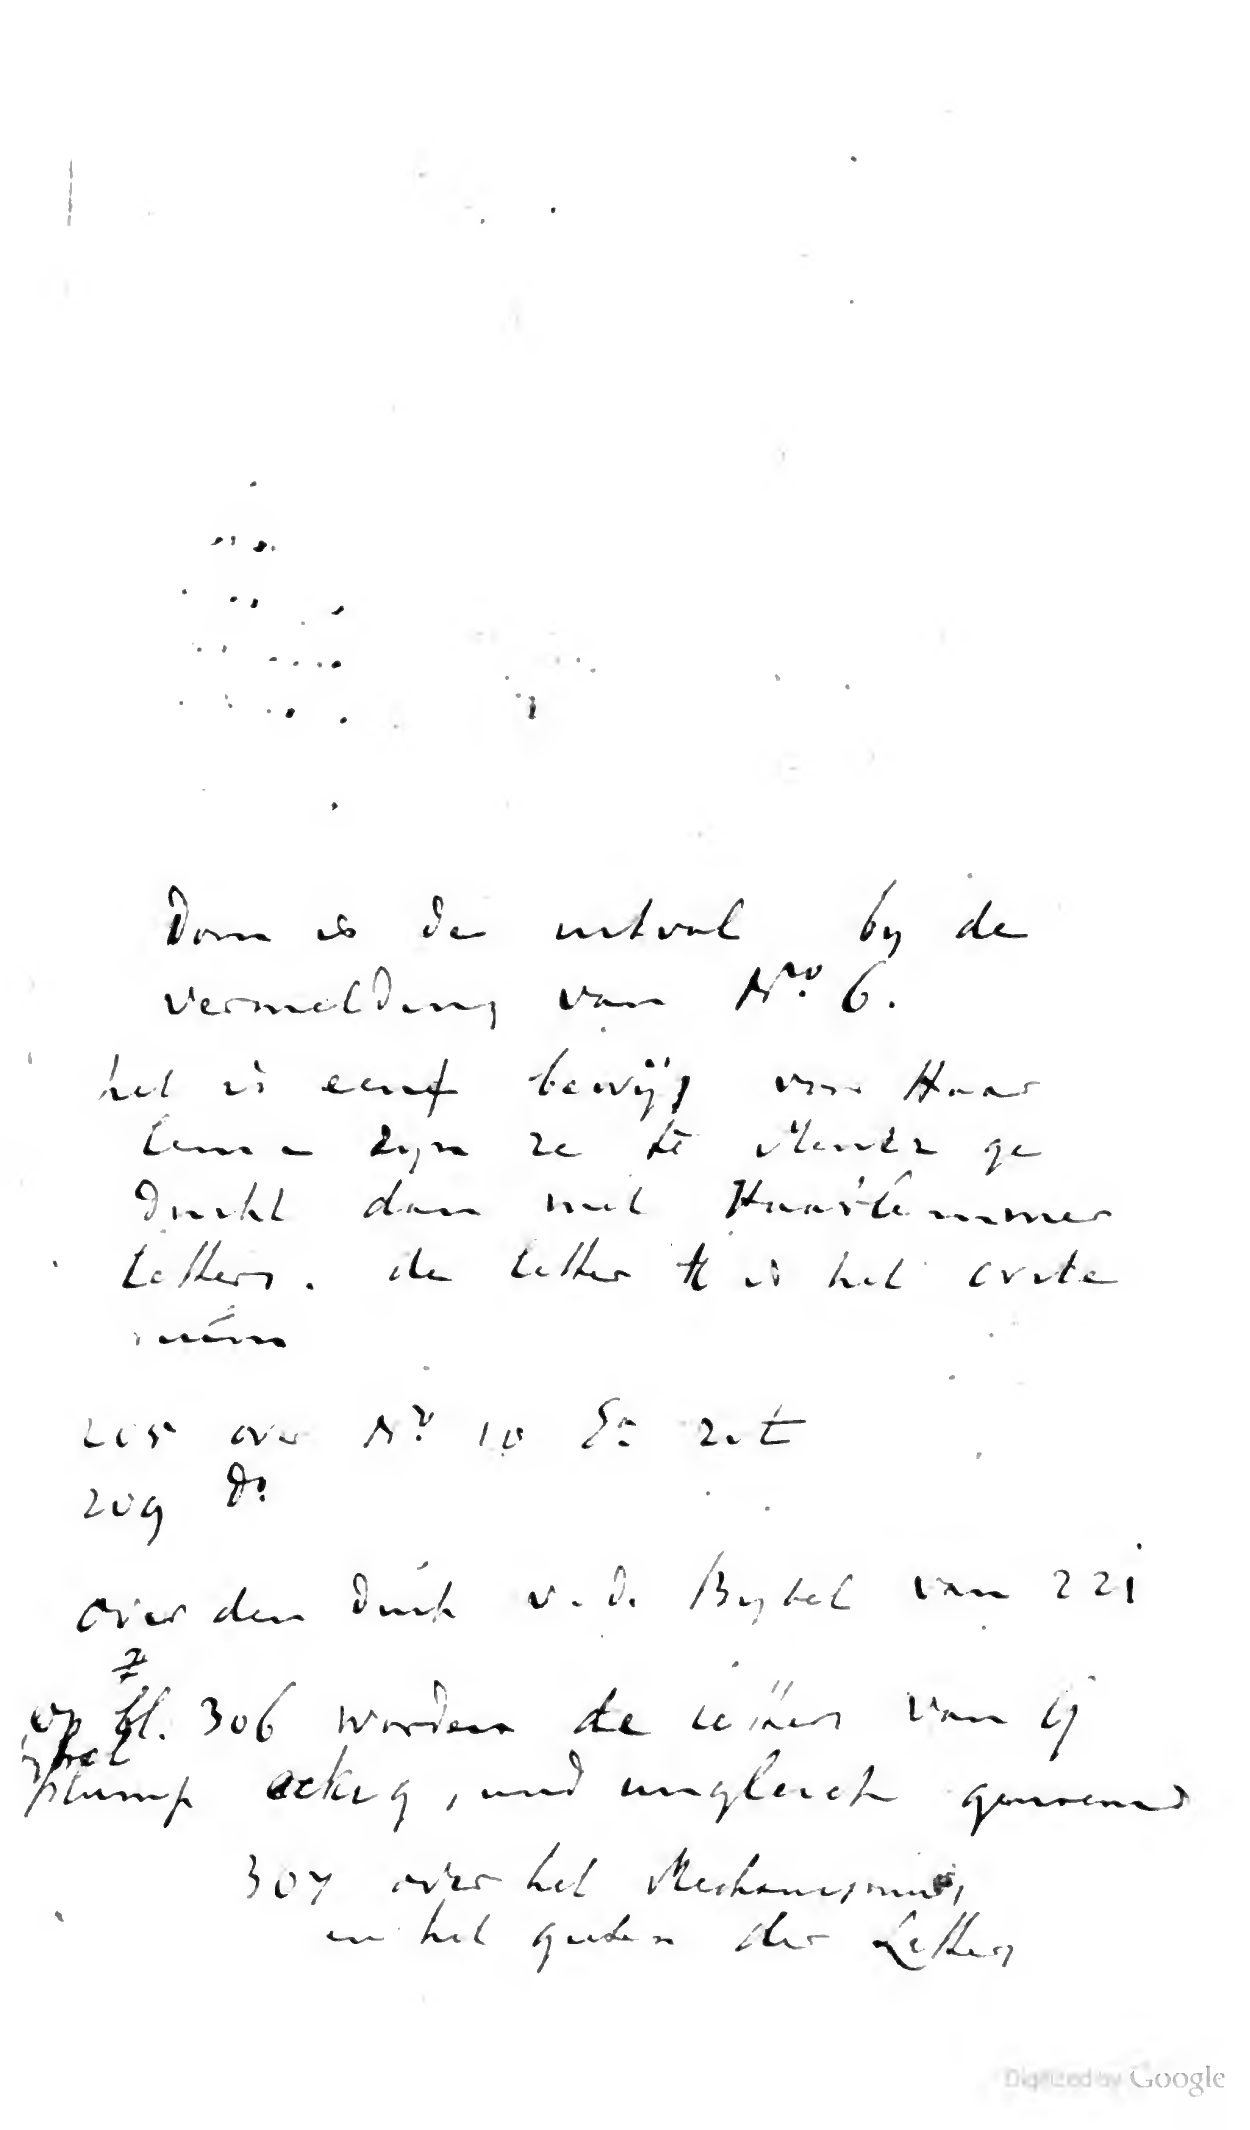 Dom is de uitval by de
vermelding van Nro. 6.
het is een bewijs van Haar
lem zyn ze te Mentz ge
drukt dan met Haarlemmer
letters. de letter is het
205 over No. 10
209 do
over den druk v. d. Bybel van 221
op bl. 306 worden de letters van
plump eckig, und ungleich genoemd
307 over het Mechanismus,
en het gieten der Letters
Digitized by Google